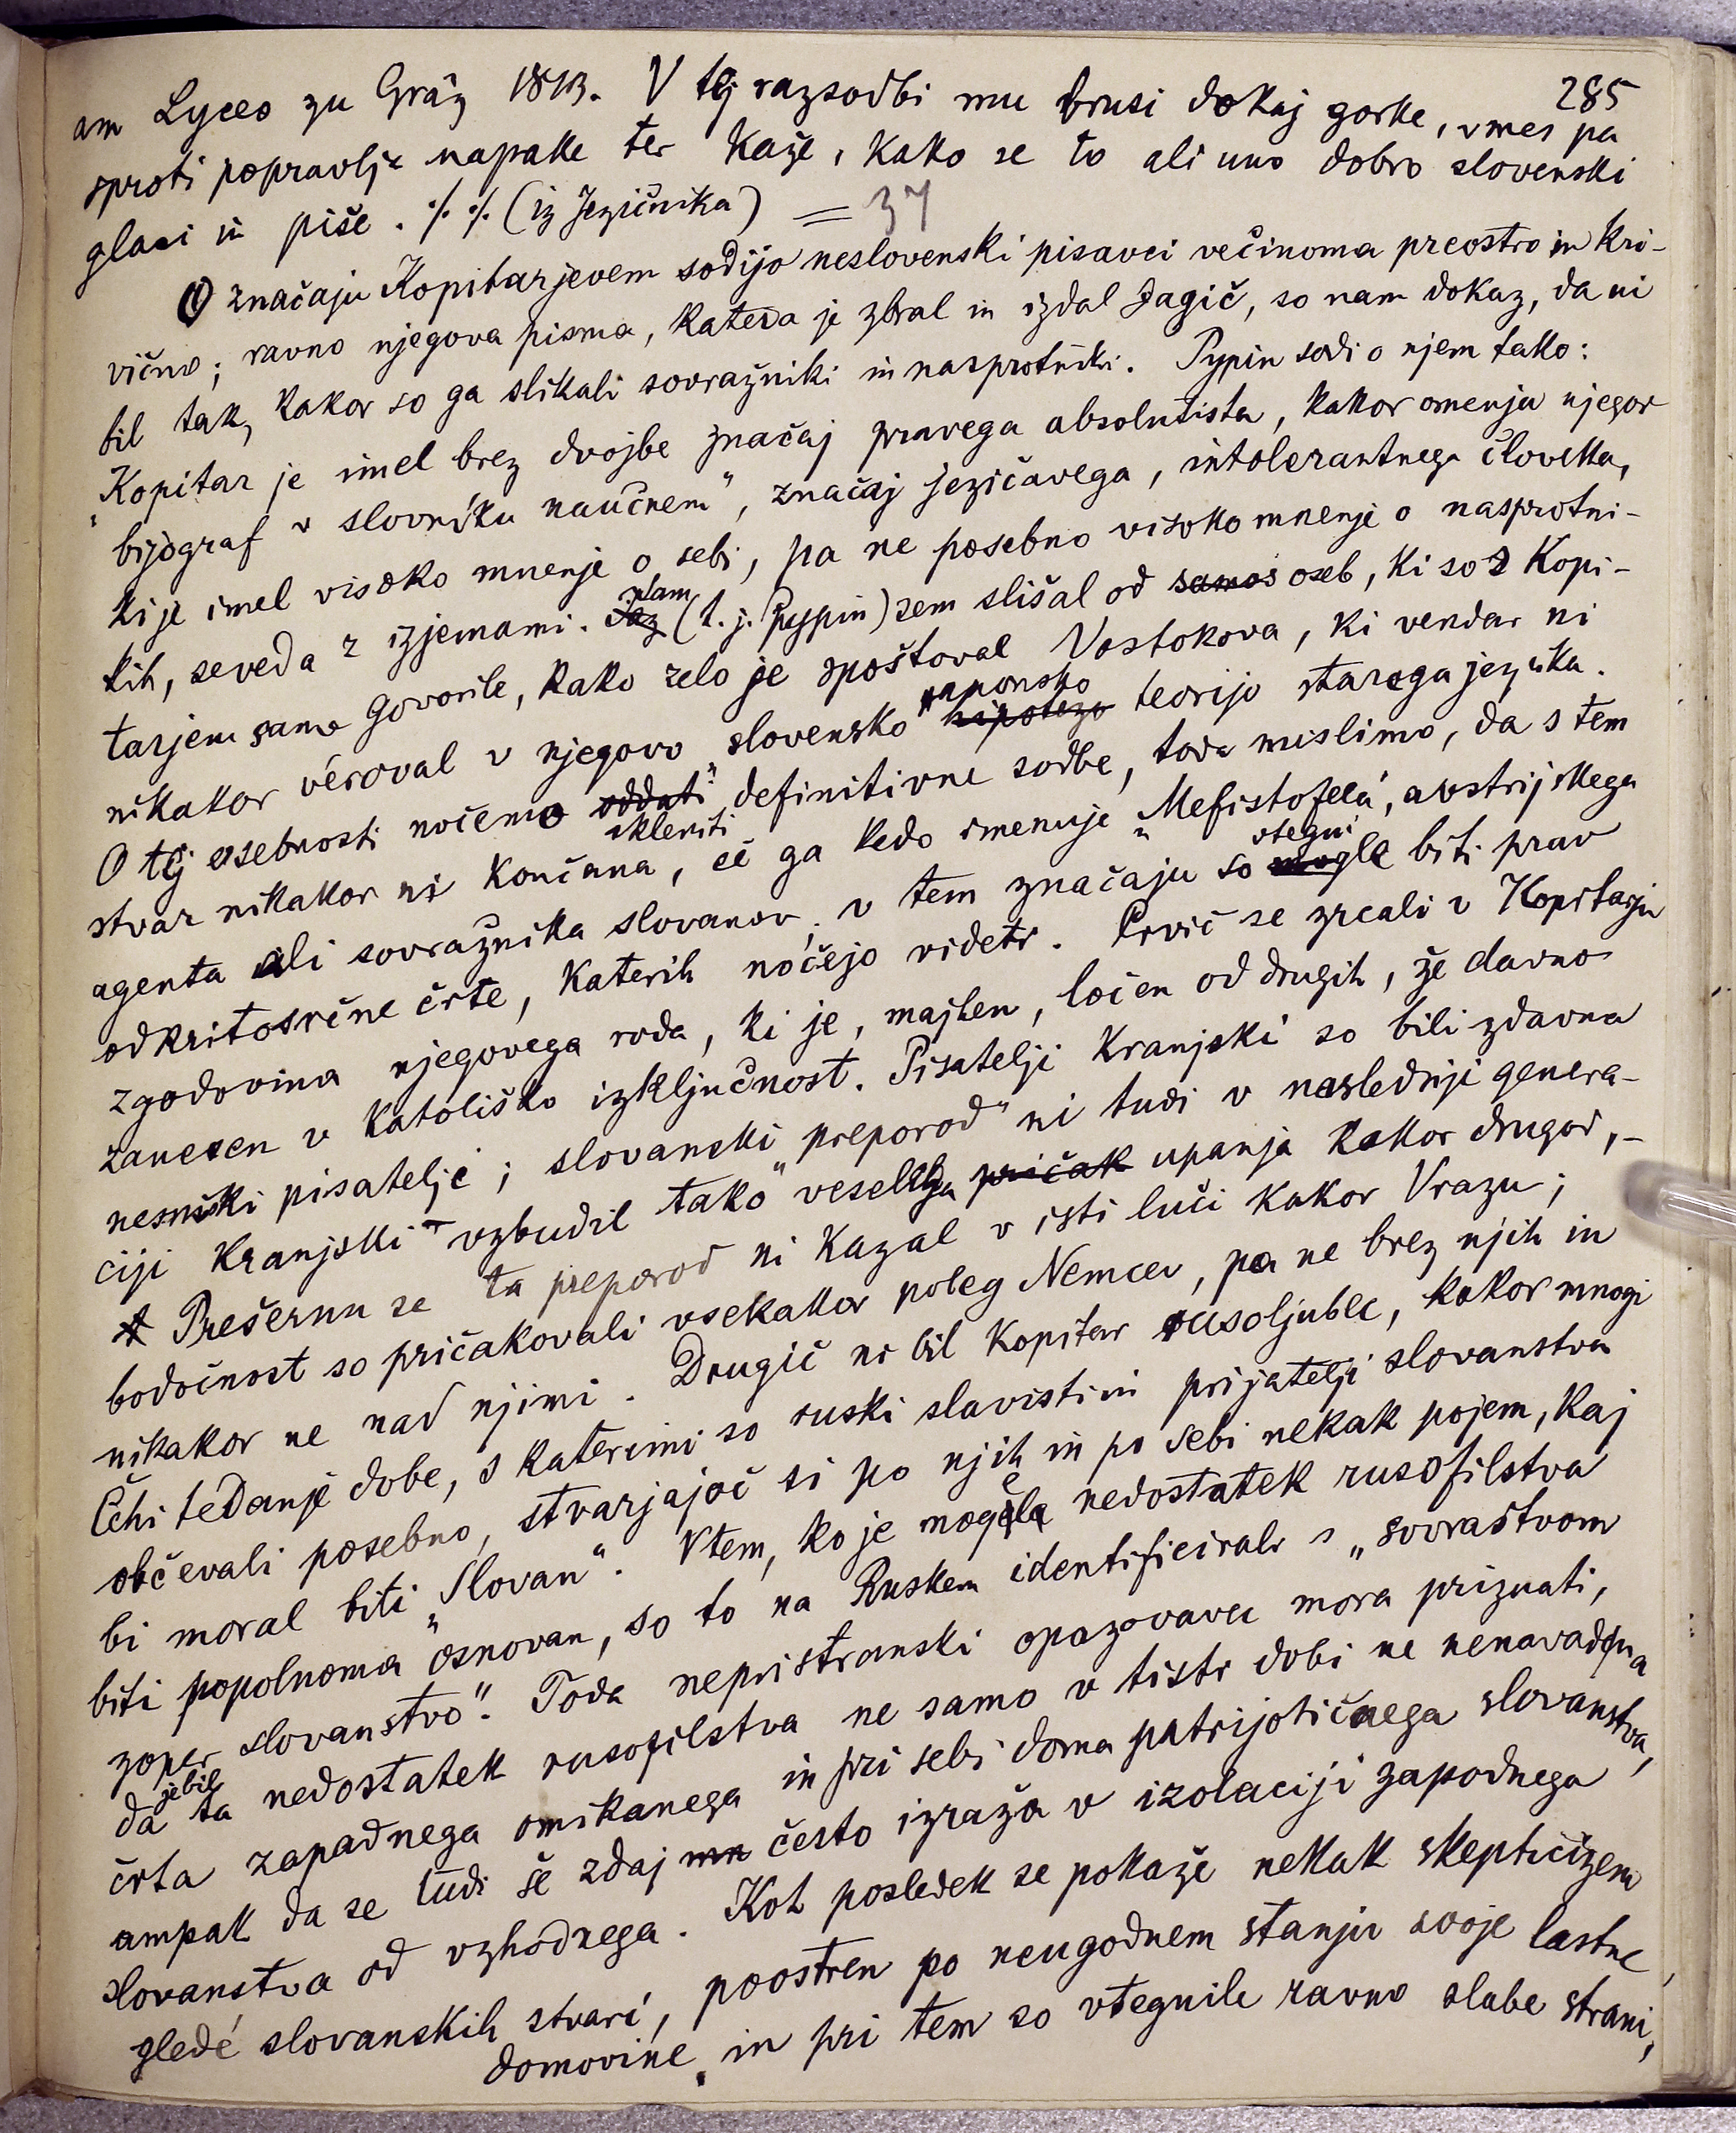 285
am Lyceo zu Gräz 1813. V tej razsodbi mu brusi dokaj gorke, vmes pa
sproti popravlja napake ter kaže, kako se to ali uno dobro slovenski
glasi in piše. % % (iz Jezičnika) = 37
O značaju Kopitarjevem sodijo neslovenski pisavci večinoma preostro in kri-
vično; ravno njegova pisma, katera je zbral in izdal Jagič, so nam dokaz, da ni
bil tak, kakor so ga slikali sovražniki in nasprotniki. Pypin sodi o njem tako:
"Kopitar je imel brez dvojbe značaj pravega absolutista, kakor omenja njegov
bijograf v slovníku naučnem", značaj jezičavega, intolerantnega človeka,
ki je imel visoko mnenje o sebi, pa ne posebno visoko mnenje o nasprotni-
kih, seveda z izjemami. Jaz sam (t. j. Pypin) sem slišal od samos oseb, ki so s Kopi-
tarjem samo govorile, kako zelo je spoštoval Vostokova, ki vendar ni
nikakor véroval v njegovo "slovensko hipotezo panonsko teorijo starega jezika.
O tej osebnosti nočemo oddati skleniti definitivne sodbe, toda mislimo, da s tem
stvar nikakor ni končana, če ga kedo imenuje "Mefistofela", avstrijskega
agenta ali sovražnika slovanov; v tem značaju so mogle utegnile biti prav
odkritosrčne črte, katerih nočejo videti. Prvič se zrcali v Kopitarju
zgodovina njegovega roda, ki je, majhen, ločen od drugih, že davno
zanesen v katoliško izključnost. Pisatelji kranjski so bili zdavna
nemški pisatelji; slovanski "preporod" ni tudi v naslednji genera-
ciji kranjski vzbudil tako veselega pričak upanja kakor drugod, -
Prešernu se ta preporod ni kazal v isti luči kakor Vrazu;
bodočnost so pričakovali vsekakor poleg Nemcev, pa ne brez njih in
nikakor ne nad njimi. Drugič ni bil Kopitar rusoljubec, kakor mnogi
Čehi tedanje dobe, s katerimi so ruski slavisti in prijatelji slovanstva
občevali posebno, stvarjajoč si po njih in po sebi nekak pojem, kaj
bi moral biti "Slovan". V tem, ko je mogel nedostatek rusofilstva
biti popolnoma osnovan, so to na Ruskem identificirali s "sovraštvom
zoper slovanstvo". Toda nepristranski opazovavec mora priznati,
da je bil ta nedostatek rusofilstva ne samo v tisti dobi ne nenavadna
črta zapadnega omikanega in pri sebi doma patrijotičnega slovanstva,
ampak da se tudi še zdaj mn često izraža v izolaciji zapadnega
slovanstva od vzhodnega. Kot posledek se pokaže nekak skepticizem
gledé slovanskih stvari, poostren po neugodnem stanju svoje lastne
domovine, in pri tem so vtegnile ravno slabe strani,